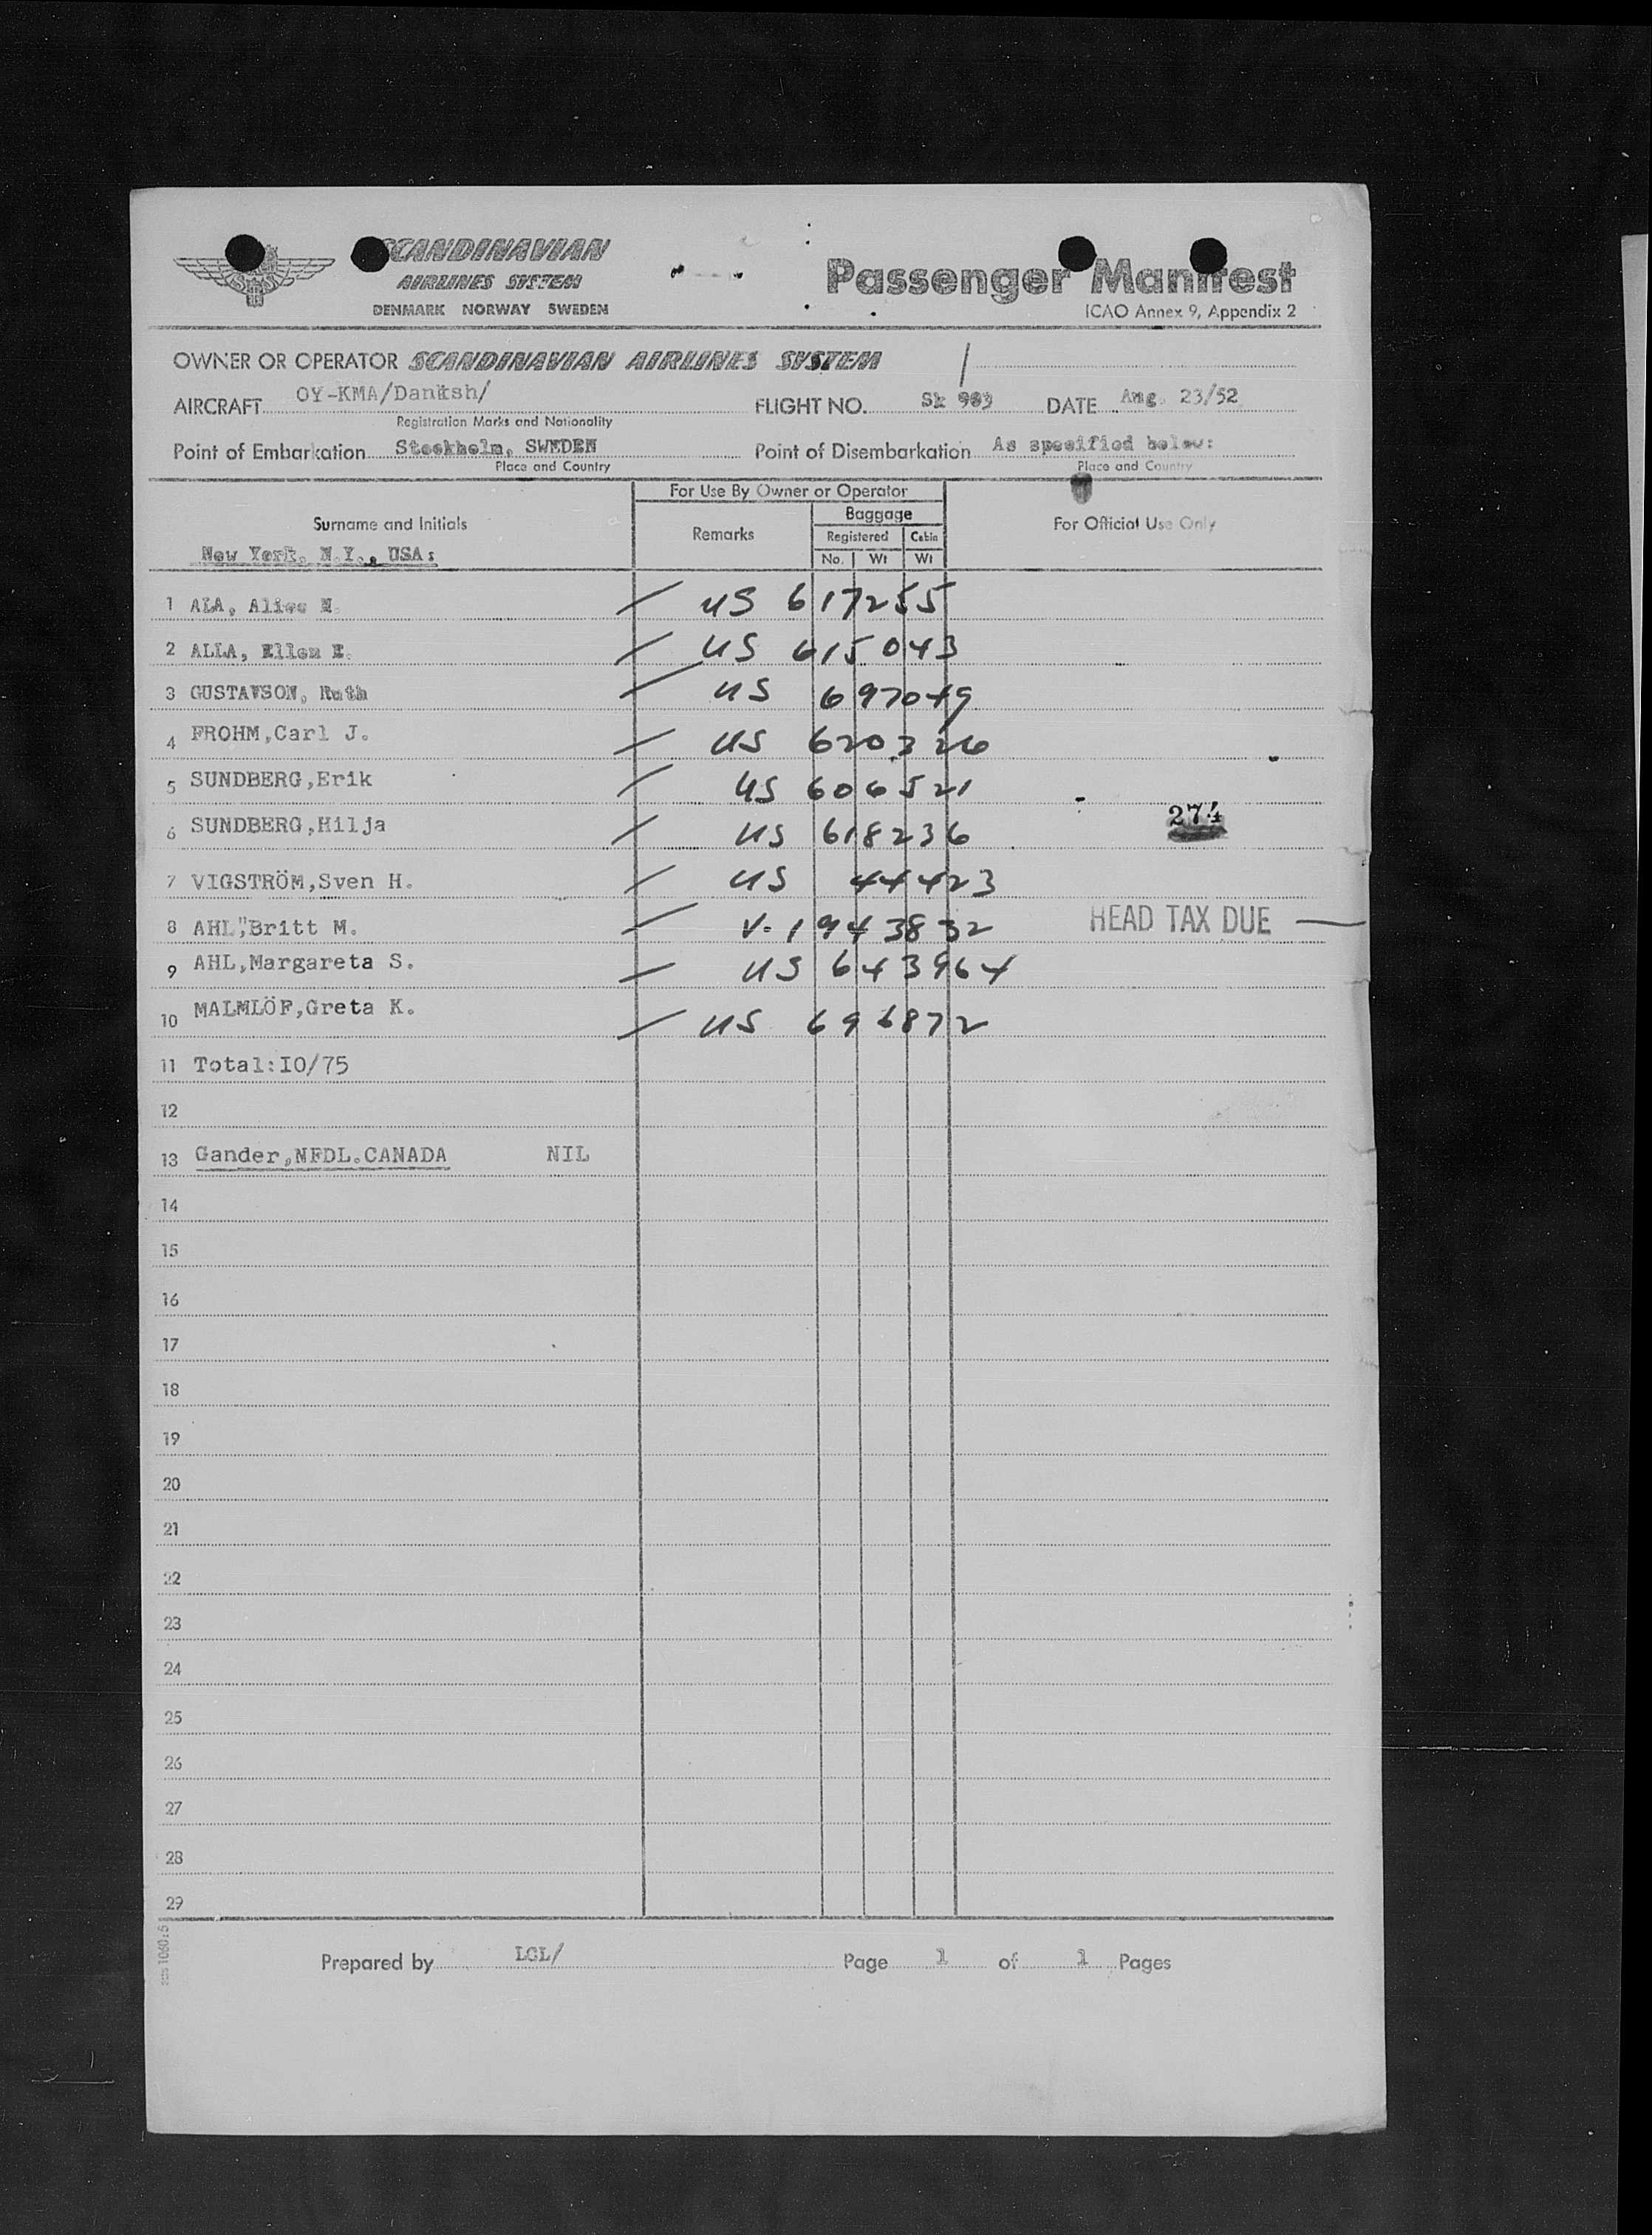 SCANDINAVIAN
AIRLINES SYSTEM
DENMARK NORWAY SWEDEN
Passenger Manifest
ICAO Annex 9, Appendix 2
OWNER OR OPERATOR SCANDINAVIAN AIRLINES SYSTEM
AIRCRAFT OY-KMA/Danish/ FLIGHT NO. Sk 903 DATE Aug. 23/52
Registration Marks and Nationality
Point of Embarkation Stockholm, SWEDEN Point of Disembarkation As specified below:
Place and Country Place and Country
For Use By Owner or Operator
Surname and Initials Remarks Baggage For Official Use Only
Registered Cabin
No. Wt Wt
New York, N.Y., USA:
1 ALA, Alice N. US 617255
2 ALLA, Ellen E. US 615043
3 GUSTAVSON, Ruth US 697049
4 FROHM,Carl J. US 620326
5 SUNDBERG,Erik US 606521
6 SUNDBERG,Hilja US 618236 274
7 VIGSTRÖM,Sven H. US 44423
8 AHL,Britt M. V-1943832 HEAD TAX DUE
9 AHL,Margareta S. US 643964
10 MALMLÖF,Greta K. US 696872
11 Total:I0/75
12
13 Gander,NFDL.CANADA NIL
14
15
16
17
18
19
20
21
22
23
24
25
26
27
28
29
sas 1060:5
Prepared by LCL/ Page 1 of 1 Pages